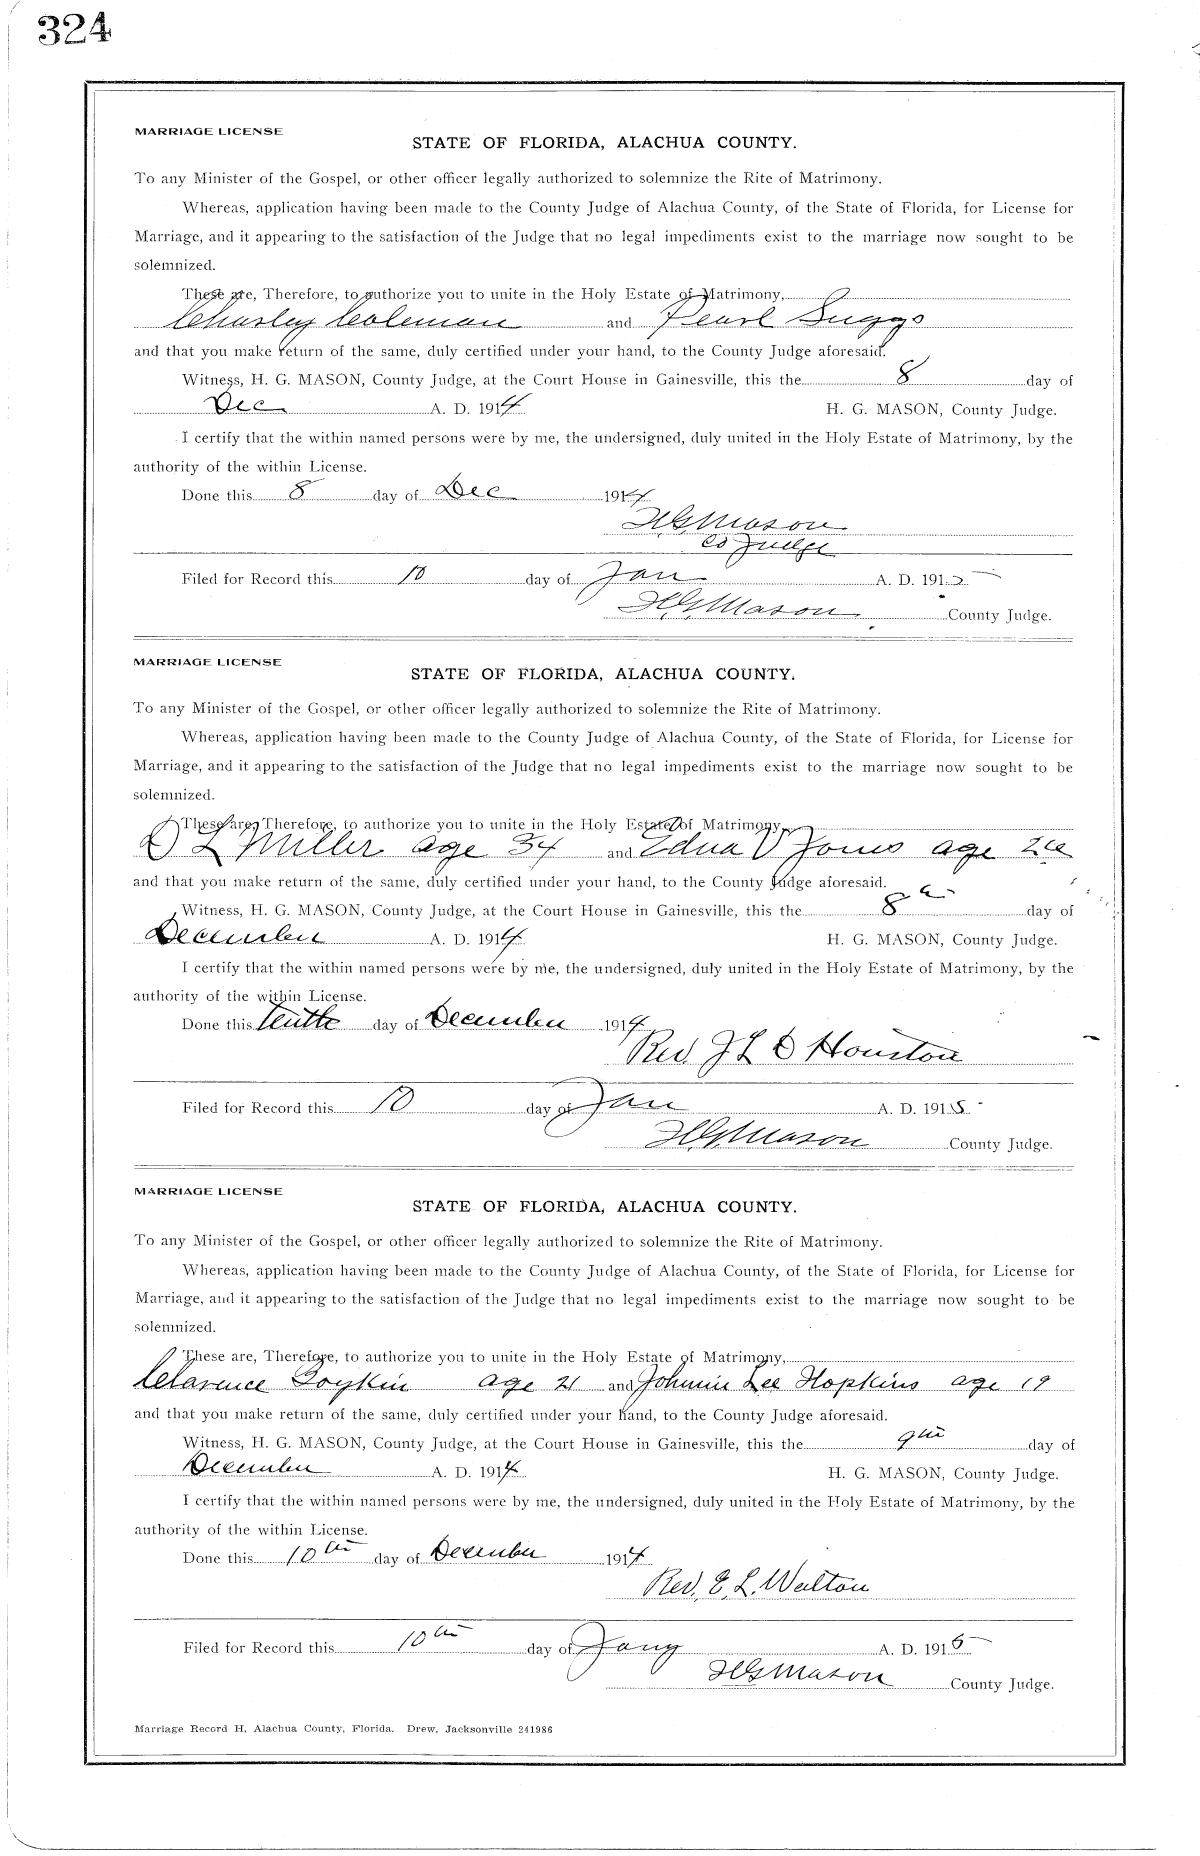 324
MARRIAGE LICENSE
STATE OF FLORIDA, ALACHUA COUNTY.
To any Minister of the Gospel, or other officer legally authorized to solemnize the Rite of Matrimony.
Whereas, application having been made to the County Judge of Alachua County, of the State of Florida, for License for
Marriage, and it appearing to the satisfaction of the Judge that no legal impediments exist to the marriage now sought to be
solemnized.
These are, Therefore, to authorize you to unite in the Holy Estate of Matrimony,
Charley Coleman and Pearl Suggs
and that you make return of the same, duly certified under your hand, to the County Judge aforesaid.
Witness, H. G. MASON, County Judge, at the Court House in Gainesville, this the 8 day of
Dec A. D. 1914 H. G. MASON, County Judge.
I certify that the within named persons were by me, the undersigned, duly united in the Holy Estate of Matrimony, by the
authority of the within License.
Done this 8 day of Dec 1914
H G Mason
Co Judge
Filed for Record this 10 day of Jan A. D. 1915
H. G. Mason County Judge.
MARRIAGE LICENSE
STATE OF FLORIDA, ALACHUA COUNTY.
To any Minister of the Gospel, or other officer legally authorized to solemnize the Rite of Matrimony.
Whereas, application having been made to the County Judge of Alachua County, of the State of Florida, for License for
Marriage, and it appearing to the satisfaction of the Judge that no legal impediments exist to the marriage now sought to be
solemnized.
These are, Therefore, to authorize you to unite in the Holy Estate of Matrimony,
D L Miller age 34 and Edna V Jones age 26
and that you make return of the same, duly certified under your hand, to the County Judge aforesaid.
Witness, H. G. MASON, County Judge, at the Court House in Gainesville, this the 8th day of
December A. D. 1914 H. G. MASON, County Judge.
I certify that the within named persons were by me, the undersigned, duly united in the Holy Estate of Matrimony, by the
authority of the within License.
Done this tenth day of December 1914
Rev. J L D Houston
Filed for Record this 10 day of Jan A. D. 1915
H. G. Mason County Judge.
MARRIAGE LICENSE
STATE OF FLORIDA, ALACHUA COUNTY.
To any Minister of the Gospel, or other officer legally authorized to solemnize the Rite of Matrimony.
Whereas, application having been made to the County Judge of Alachua County, of the State of Florida, for License for
Marriage, and it appearing to the satisfaction of the Judge that no legal impediments exist to the marriage now sought to be
solemnized.
These are, Therefore, to authorize you to unite in the Holy Estate of Matrimony,
Clarence Boykin age 21 and Johnnie Lee Hopkins age 19
and that you make return of the same, duly certified under your hand, to the County Judge aforesaid.
Witness, H. G. MASON, County Judge, at the Court House in Gainesville, this the 9th day of
December A. D. 1914 H. G. MASON, County Judge.
I certify that the within named persons were by me, the undersigned, duly united in the Holy Estate of Matrimony, by the
authority of the within License.
Done this 10th day of December 1914
Rev. E. L. Walton
Filed for Record this 10th day of Jany A. D. 1915
H G Mason County Judge.
Marriage Record H, Alachua County, Florida. Drew, Jacksonville 241986